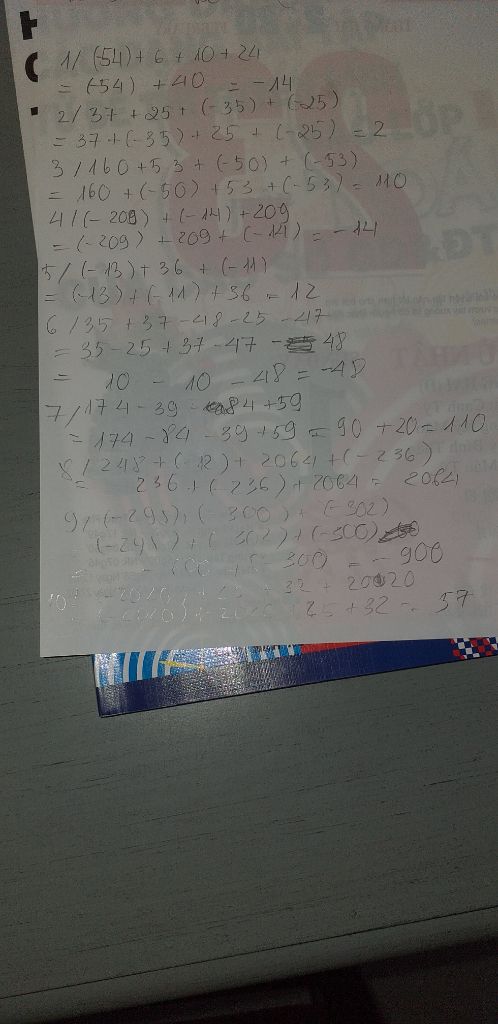 1/ (-54) + 6 + 10 + 24
= (-54) + 40 = -14
2/ 37 + 25 + (-35) + (-25)
= 37 + (-35) + 25 + (-25) = 2
3/ 160 + 53 + (-50) + (-53)
= 160 + (-50) + 53 + (-53) = 110
4/ (-209) + (-14) + 209
= (-209) + 209 + (-14) = -14
5/ (-13) + 36 + (-11)
= (-13) + (-11) + 36 = 12
6/ 35 + 37 - 48 - 25 - 47
= 35 - 25 + 37 - 47 - 48
= 10 - 10 - 48 = -48
7/ 174 - 39 - 84 + 59
= 174 - 84 - 39 + 59 = 90 + 20 = 110
8/ 248 + (-12) + 2064 + (-236)
= 236 + (-236) + 2064 = 2064
9/ (-298) + (-300) + (-302)
(-298) + (-302) + (-300)
- 300 = -900
10 + 32 + 2020
+ 32 = 57